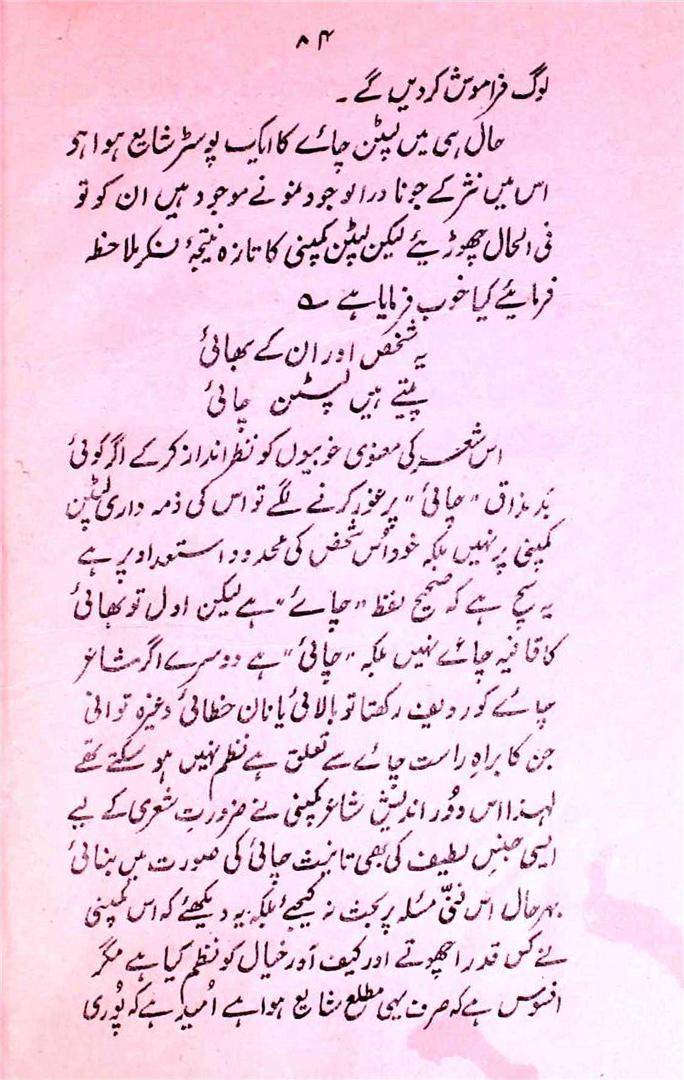 ۸۴
لوگ فراموش کردیں گے۔
حال ہی میں لپٹن چائے کا ایک پوسٹر شایع ہوا ہو
اس میں نثر کے جو نادر الوجود نمونے موجود ہیں ان کو تو
فی الحال چھوڑیئے لیکن لپٹن کمپنی کا تازہ نتیجۂ فکر ملاحظہ
فرمایئے کیا خوب فرمایا ہے ؎
یہ شخص اور ان کے بھائی
پیتے ہیں لپٹن چائی
اس شعر کی معنوی خوبیوں کو نظر انداز کرکے اگر کوئی
بد مذاق "چائی" پر غور کرنے لگے تو اس کی ذمہ داری لپٹن
کمپنی پر نہیں بلکہ خود اُس شخص کی محدود استعداد پر ہے
یہ سچ ہے کہ صحیح لفظ "چائے" ہے لیکن اول تو بھائی
کا قافیہ چائے نہیں بلکہ "چائی" ہے دوسرے اگر شاعر
چائے کو ردیف رکھتا تو بالائی یا نان خطائی وغیرہ قوافی
جن کا براہِ راست چائے سے تعلق ہے نظم نہیں ہو سکتے تھے
لہذا اس دُور اندیش شاعر کمپنی نے ضرورتِ شعری کے لیے
ایسی جنسِ لطیف کی بھی تانیث چائی کی صورت میں بنائی
بہر حال اِس فنّی مسئلہ پر بحث نہ کیجیے بلکہ یہ دیکھئے کہ اس کمپنی
نے کس قدر اچھوتے اور کیف آور خیال کو نظم کیا ہے مگر
افسوس ہے کہ صرف یہی مطلع شایع ہوا ہے اُمید ہے کہ پُوری